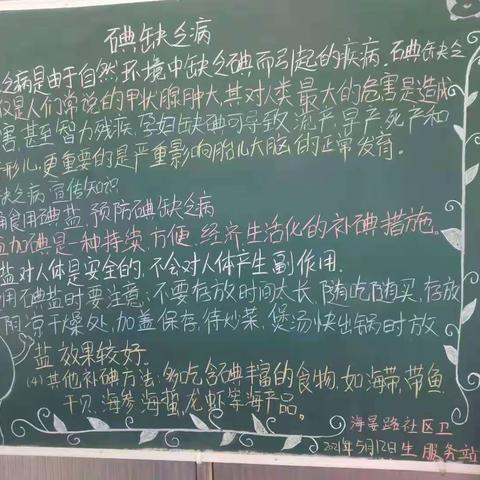 碘缺乏病
乏病是由于自然环境中缺乏碘而引起的疾病.碘缺乏
是人们常说的甲状腺肿大,其对人类最大的危害是造成
害,甚至智力残疾,孕妇缺碘可导致流产,早产,死产和
形儿,更重要的是严重影响胎儿大脑的正常发育。
缺乏病宣传知识
食用碘盐,预防碘缺乏病
加碘是一种持续,方便,经济,生活化的补碘措施。
盐对人体是安全的,不会对人体产生副作用.
用碘盐时要注意,不要存放时间太长,随吃随买,存放
阴凉干燥处,加盖保存,待炒菜,煲汤快出锅时放
盐效果较好.
(4)其他补碘方法:多吃含碘丰富的食物,如海带,带鱼
干贝,海参,海蜇,龙虾等海产品。
海晏路社区卫
2021年5月12日生服务站